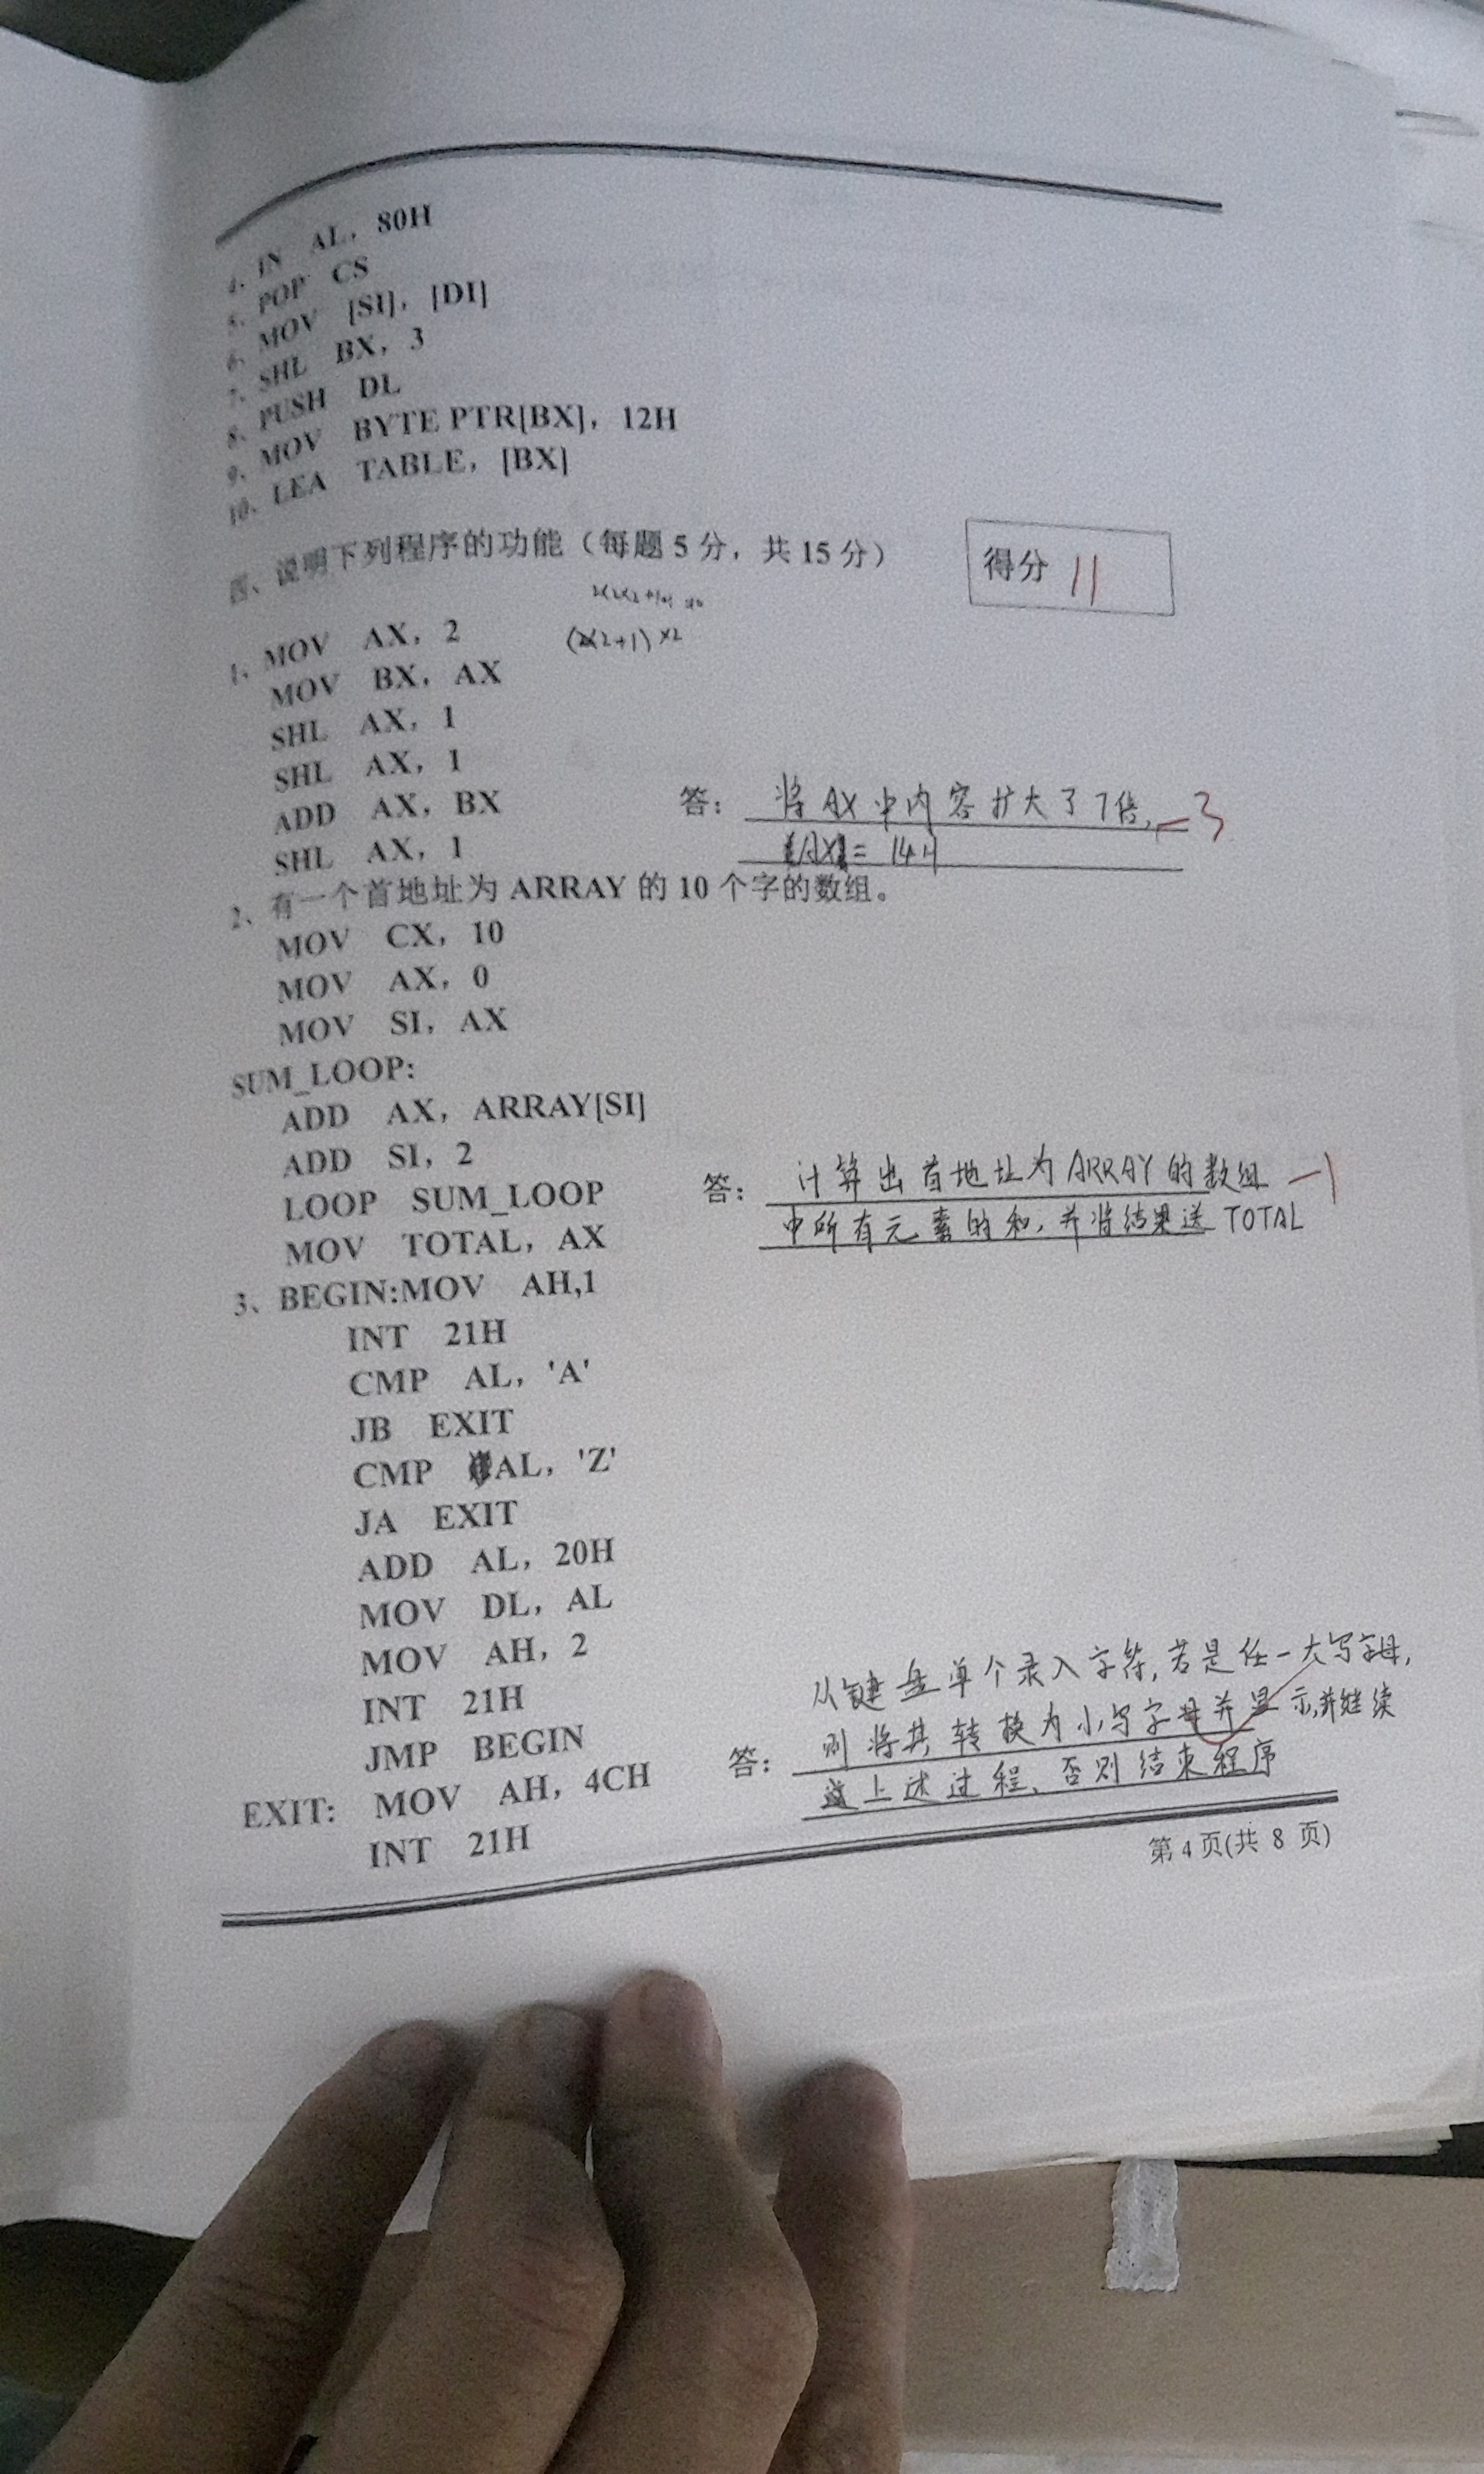 4、IN AL，80H
5、POP CS
6、MOV [SI]，[DI]
7、SHL BX，3
8、PUSH DL
9、MOV BYTE PTR[BX]，12H
10、LEA TABLE，[BX]
四、说明下列程序的功能（每题5分，共15分）
得分 11
(2×2+1)×2
1、MOV AX，2
MOV BX，AX
SHL AX，1
SHL AX，1
ADD AX，BX
SHL AX，1
答：将AX中内容扩大了7倍， -3
(AX)= 14H
2、有一个首地址为ARRAY的10个字的数组。
MOV CX，10
MOV AX，0
MOV SI，AX
SUM_LOOP:
ADD AX，ARRAY[SI]
ADD SI，2
LOOP SUM_LOOP
MOV TOTAL，AX
答：计算出首地址为ARRAY的数组 -1
中所有元素的和，并将结果送TOTAL
3、BEGIN:MOV AH,1
INT 21H
CMP AL，'A'
JB EXIT
CMP AL，'Z'
JA EXIT
ADD AL，20H
MOV DL，AL
MOV AH，2
INT 21H
JMP BEGIN
EXIT: MOV AH，4CH
INT 21H
从键盘单个录入字符，若是任一大写字母，
答：则将其转换为小写字母并显示，并继续
上述过程，否则结束程序
第4页(共 8 页)